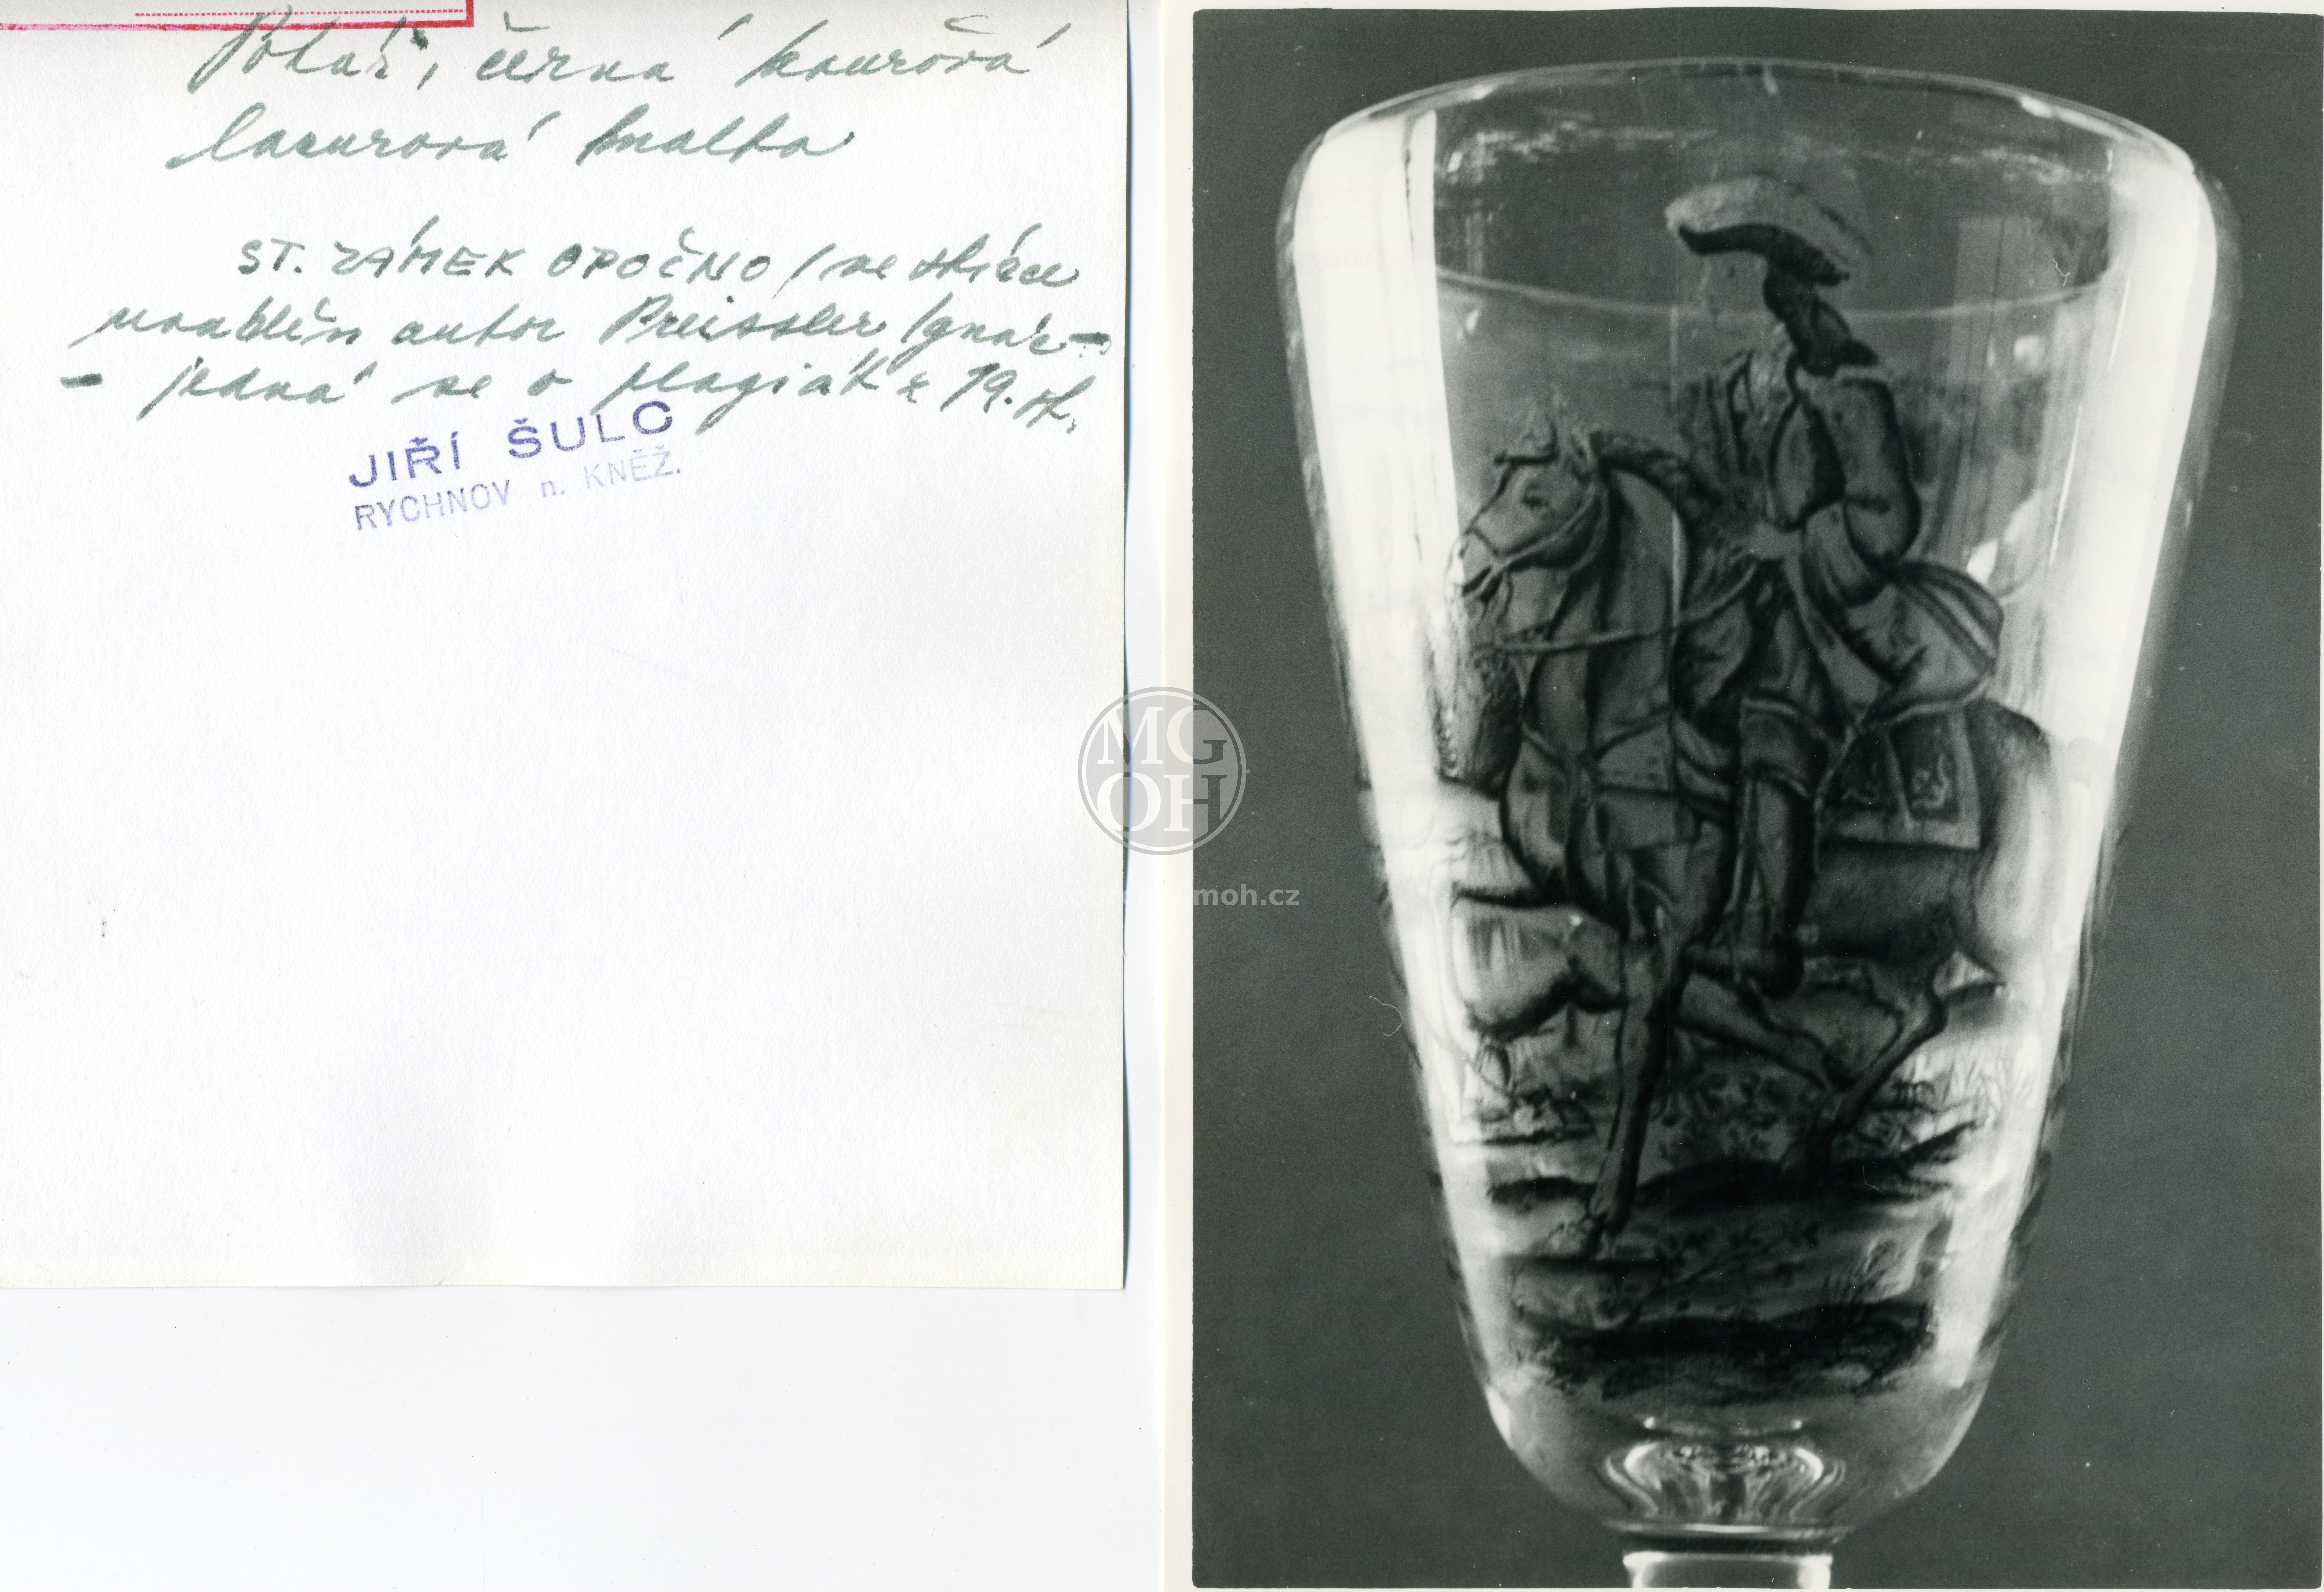 Pohár, černá kouřová
lazurová malba
ST. ZÁMEK OPOČNO / ve sbírce
uváděn autor Preissler Ignác -
- jedná se o plagiát z 19. st.
JIŘÍ ŠULC
RYCHNOV n. KNĚŽ.
MG
OH
moh.cz